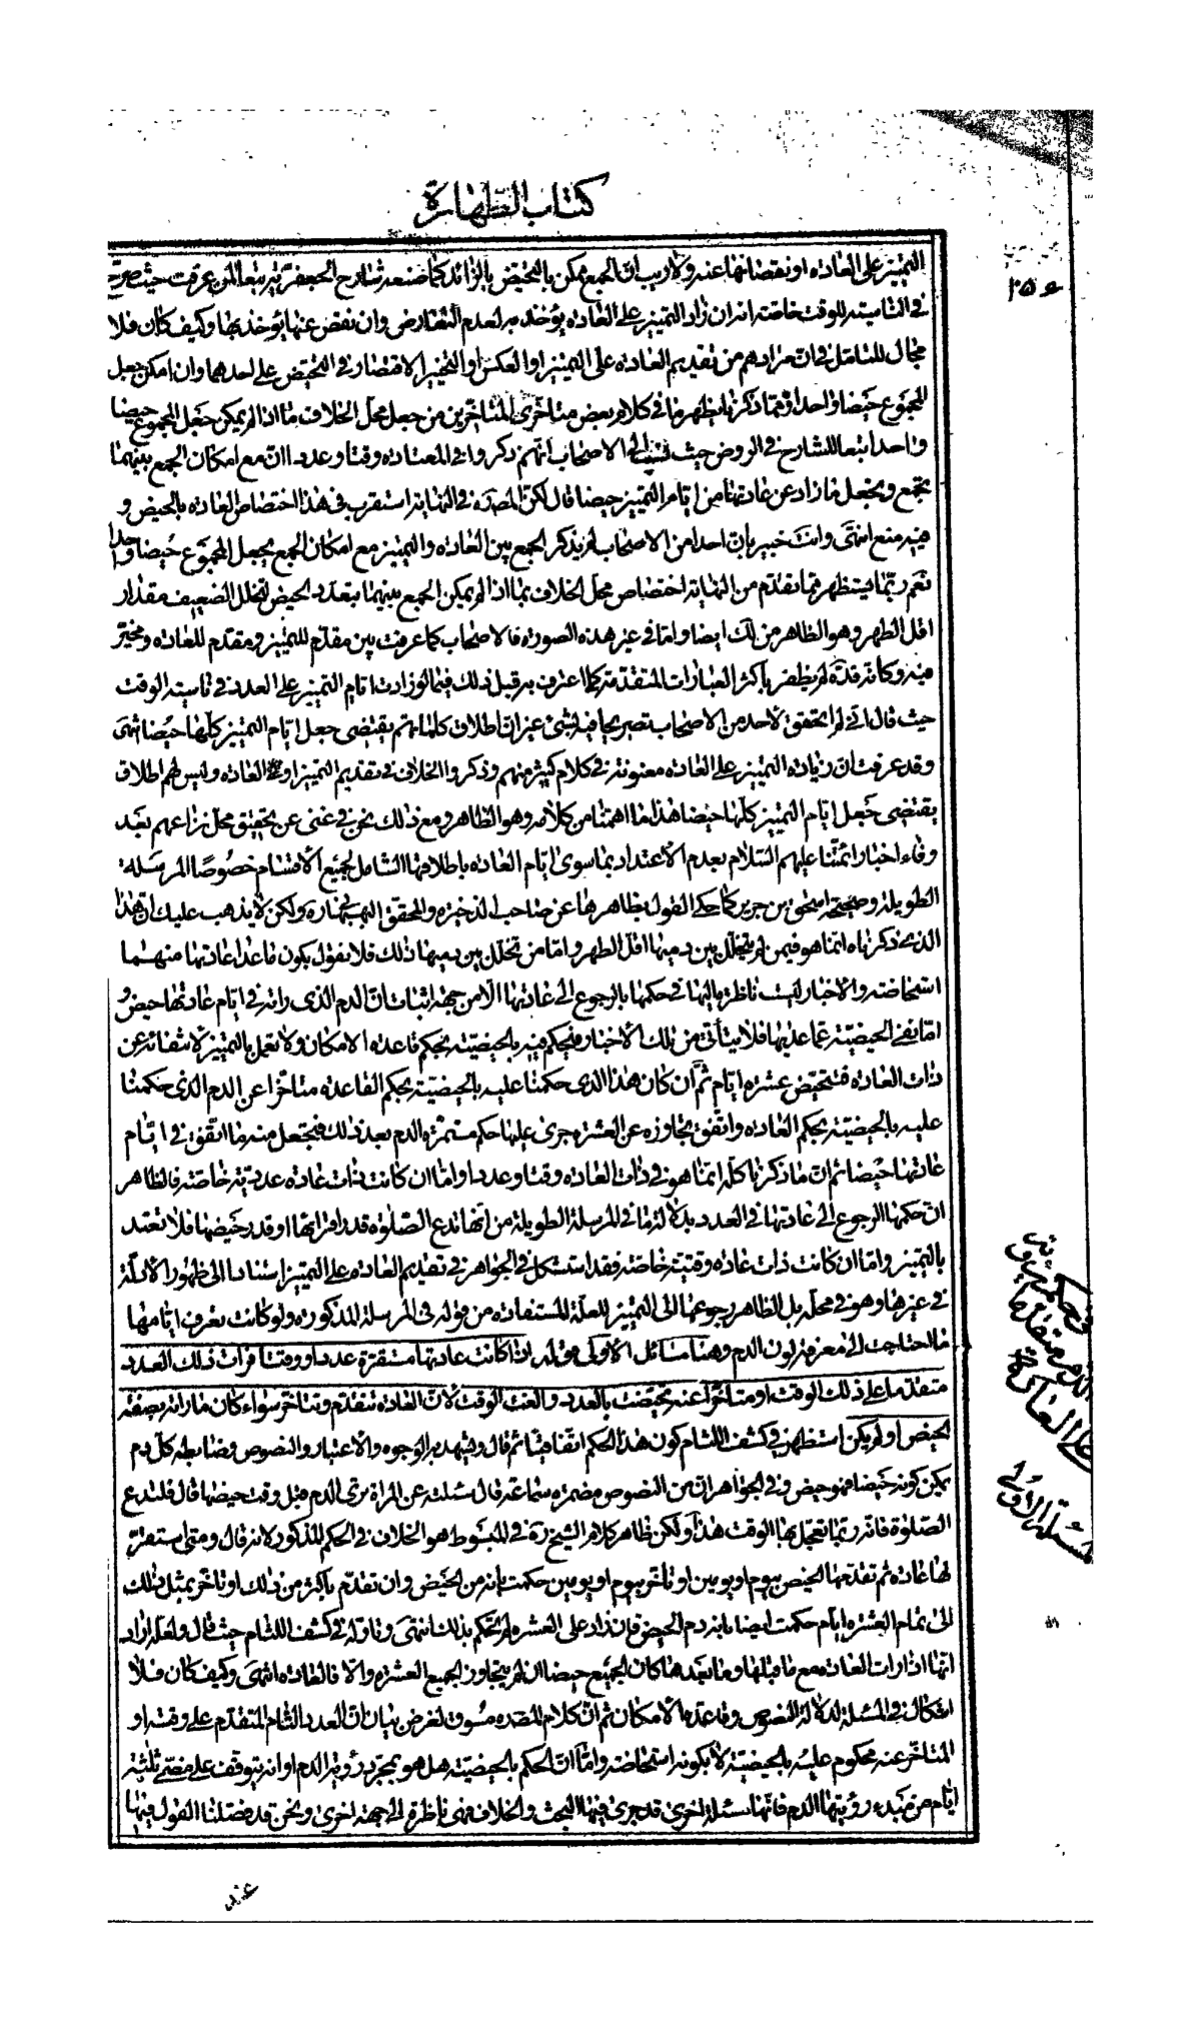 كتاب الطهارة
٢٥٤
التميز على العادة او نقصانها عنه ولا ريب ان الجمع ممكن بالتحيض بالزائد كما صنعه شارح الجعفرية تبعا لمن عرفت حيث صرح
في الناسية للوقت خاصة انه ان زاد التميز على العادة يؤخذ به لعدم التعارض وان نقص عنها يؤخذ بها وكيف كان فلا
مجال للتامل في ان مرادهم من تقديم العادة على التميز او العكس او التخيير الاقتصار في التحيض على احدهما وان امكن جعل
المجموع حيضا واحدا ومما ذكرنا يظهر ما في كلام بعض متاخري المتاخرين من جعل محل الخلاف ما اذا لم يمكن جعل المجموع حيضا
واحدا تبعا للشارح في الروض حيث نسب الى الاصحاب انهم ذكروا في المعتادة وقتا وعددا ان مع امكان الجمع بينهما
يجمع ويجعل ما زاد عن عادتها من ايام التميز حيضا قال لكن المصره في النهاية استقرب في هذا اختصاص العادة بالحيض و
فيه منع انتهى وانت خبير بان احدا من الاصحاب لم يذكر الجمع بين العادة والتميز مع امكان الجمع بجعل المجموع حيضا واحدا
نعم ربما يستظهر مما تقدم من النهاية اختصاص محل الخلاف بما اذا لم يمكن الجمع بينهما بتعدد الحيض لتخلل الضعيف مقدار
اقل الطهر وهو الظاهر من لك ايضا واما في غير هذه الصورة فالاصحاب كما عرفت بين مقدم للتميز ومقدم للعادة ومخير
فيه وكانه قده لم يظفر باكثر العبارات المتقدمة كما اعترف به قبل ذلك فيما لو زادت ايام التميز على العدد في ناسية الوقت
حيث قال اني لم اتحقق لاحد من الاصحاب تصريحا فيه بشئ غير ان اطلاق كلماتهم يقتضي جعل ايام التميز كلها حيضا انتهى
وقد عرفت ان زيادة التميز على العادة معنونة في كلام كثير منهم وذكروا الخلاف في تقديم التميز او العادة وليس لهم اطلاق
يقتضي جعل ايام التميز كلها حيضا هذا ما اهمنا من كلامه وهو الظاهر ومع ذلك نحن في غنى عن تحقيق محل نزاعهم بعد
وفاء اخبار ائمتنا عليهم السلام بعدم الاعتداد بما سوى ايام العادة باطلاقها الشامل لجميع الاقسام خصوصا المرسلة
الطويلة وصحيحة اسحق بن جرير كما حكي القول بظاهرها عن صاحب الذخيرة والمحقق البهبهاني ره ولكن لا يذهب عليك ان هذا
الذي ذكرناه انما هو فيمن لم يتخلل بين دميها اقل الطهر واما من تخلل بين دميها ذلك فلا نقول بكون ما عدا عادتها منهما
استحاضة والاخبار ليست ناظرة اليها في حكمها بالرجوع الى عادتها الا من جهة اثبات ان الدم الذي راته في ايام عادتها حيض و
اما نفي الحيضية عما عليها فلا يتاتى من تلك الاخبار فيحكم فيه بالحيضية بحكم قاعدة الامكان ولا تعمل بالتميز لانتفائه عن
ذات العادة فتتحيض عشرة ايام ثم ان كان هذا الذي حكمنا عليه بالحيضية بحكم القاعدة متاخرا عن الدم الذي حكمنا
عليه بالحيضية بحكم العادة واتفق تجاوزه عن العشرة جرى عليها حكم مستمرة الدم بعد ذلك فيجعل منه ما اتفق في ايام
عادتها حيضا ثم ان ما ذكرنا كله انما هو في ذات العادة وقتا وعددا واما ان كانت ذات عادة عددية خاصة فالظاهر
ان حكمها الرجوع الى عادتها في العدد بدلالة ما في المرسلة الطويلة من انها تدع الصلوة قدر اقرائها او قدر حيضها فلا تعتد
بالتميز واما ان كانت ذات عادة وقتية خاصة فقد استشكل في الجواهر في تقديم العادة على التميز استنادا الى ظهور الادلة
في غيرها وهو في محله بل الظاهر رجوعها الى التميز للعلة المستفادة من قوله في المرسلة المذكورة ولو كانت تعرف ايامها
ما احتاجت الى معرفة لون الدم وهنا مسائل الاولى قوله اذا كانت عادتها مستقرة عددا ووقتا فرات ذلك العدد
متقدما على ذلك الوقت او متاخرا عنه تحيضت بالعدد والغت الوقت لان العادة تتقدم وتتاخر سواء كان ما راته بصفة
الحيض او لم يكن استظهر في كشف اللثام كون هذا الحكم اتفاقيا ثم قال ويشهد به الوجوه والاعتبار والنصوص وضابطه كل دم
يمكن كونه حيضا فهو حيض وفي الجواهر ان من النصوص مضمرة سماعة قال سئلته عن المراة ترى الدم قبل وقت حيضها قال فلتدع
الصلوة فانه ربما تعجل بها الوقت هذا ولكن ظاهر كلام الشيخ ره في المبسوط هو الخلاف في الحكم المذكور لانه قال ومتى استقر
لها عادة ثم تقدمها الحيض بيوم او يومين او تاخر بيوم او يومين حكمت بانه من الحيض وان تقدم باكثر من ذلك او تاخر بمثل ذلك
الى تمام العشرة ايام حكمت ايضا بانه دم الحيض فان زاد على العشرة لم يحكم بذلك انتهى وتاوله في كشف اللثام حيث قال ولعله اراد
انها اذا رات العادة مع ما قبلها وما بعدها كان الجميع حيضا ان لم يتجاوز الجميع العشرة والا فالعادة انتهى وكيف كان فلا
اشكال في المسئلة لدلالة النصوص وقاعدة الامكان ثم ان كلام المصره مسوق لغرض بيان ان العدد التام المتقدم على وقته او
المتاخر عنه محكوم عليه بالحيضية لا بكونه استحاضة واما ان الحكم بالحيضية هل هو بمجرد رؤية الدم او انه يتوقف على مضي ثلثة
ايام من مبدء رؤيتها الدم فانها مسئلة اخرى قد جرى فيها البحث والخلاف فهي ناظرة الى جهة اخرى ونحن قد فصلنا القول فيها
المسئلة الاولى